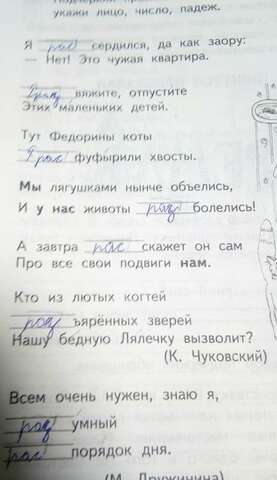 укажи лицо, число, падеж.
Я рас сердился, да как заору:
— Нет! Это чужая квартира.
вяжите, отпустите
Этих маленьких детей.
Тут Федорины коты
рас фуфырили хвосты.
Мы лягушками нынче объелись,
И у нас животы раз болелись!
А завтра рас скажет он сам
Про все свои подвиги нам.
Кто из лютых когтей
раз ъярённых зверей
Нашу бедную Лялечку вызволит?
(К. Чуковский)
Всем очень нужен, знаю я,
раз умный
рас порядок дня.
(М. Дружинина)